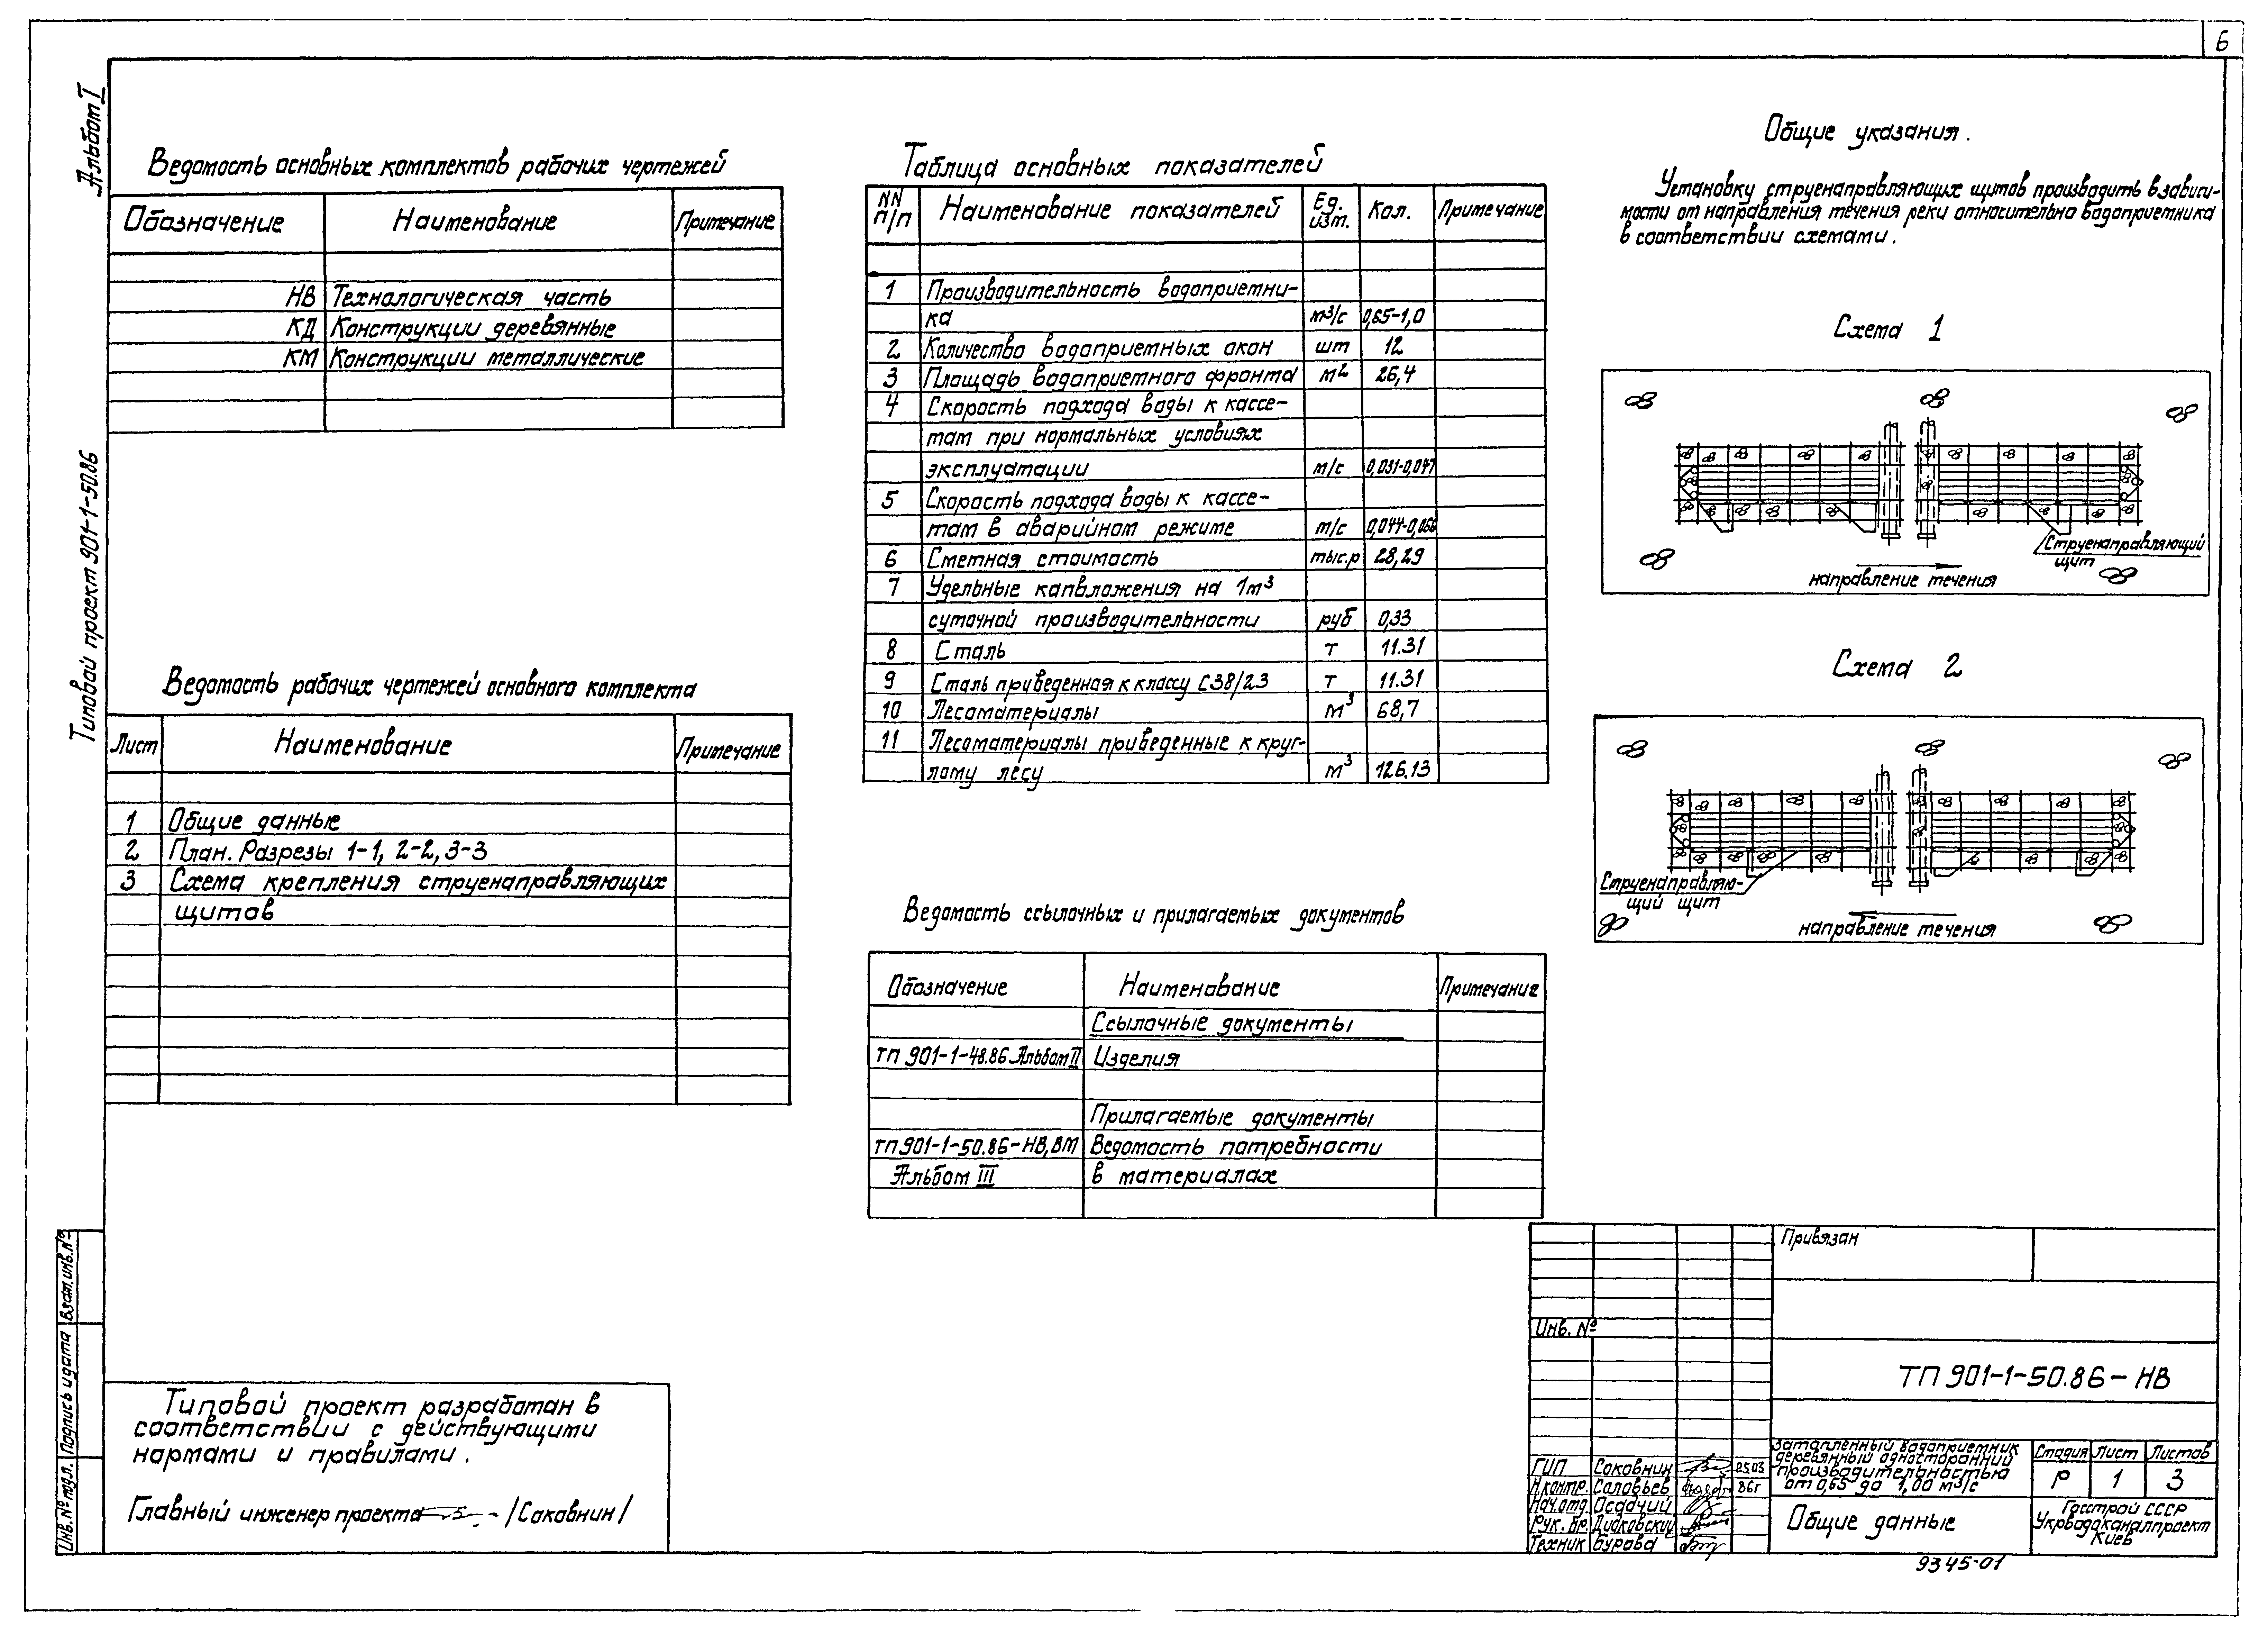 6
Альбом I
Типовой проект 901-1-50.86
Ведомость основных комплектов рабочих чертежей
Обозначение Наименование Примечание
НВ Технологическая часть
КД Конструкции деревянные
КМ Конструкции металлические
Ведомость рабочих чертежей основного комплекта
Лист Наименование Примечание
1 Общие данные
2 План. Разрезы 1-1, 2-2, 3-3
3 Схема крепления струенаправляющих
щитов
Таблица основных показателей
NN п/п Наименование показателей Ед. изм. Кол. Примечание
1 Производительность водоприемни-
ка м3/с 0,65-1,0
2 Количество водоприемных окон шт 12
3 Площадь водоприемного фронта м2 26,4
4 Скорость подхода воды к кассе-
там при нормальных условиях
эксплуатации м/с 0,031-0,047
5 Скорость подхода воды к кассе-
там в аварийном режиме м/с 0,044-0,066
6 Сметная стоимость тыс.р 28,29
7 Удельные капвложения на 1м3
суточной производительности руб 0,33
8 Сталь т 11.31
9 Сталь приведенная к классу С38/23 т 11.31
10 Лесоматериалы м3 68,7
11 Лесоматериалы приведенные к круг-
лому лесу м3 126.13
Ведомость ссылочных и прилагаемых документов
Обозначение Наименование Примечание
Ссылочные документы
ТП 901-1-48.86 Альбом II Изделия
Прилагаемые документы
ТП 901-1-50.86-НВ,ВМ Ведомость потребности
Альбом III в материалах
Общие указания.
Установку струенаправляющих щитов производить в зависи-
мости от направления течения реки относительно водоприемника
в соответствии схемами.
Схема 1
Струенаправляющий
щит
направление течения
Схема 2
Струенаправляю-
щий щит
направление течения
Взам.инв.№
Подпись и дата
Инв.№ подл.
Типовой проект разработан в
соответствии с действующими
нормами и правилами.
Главный инженер проекта /Соковнин/
Привязан
Инв. №
ТП 901-1-50.86-НВ
ГИП Соковнин 05.03
Н.контр. Соловьев 86г
Нач.отд. Осадчий
Рук. бр. Дидковский
Техник Бурова
Затопленный водоприемник
деревянный односторонний
производительностью
от 0,65 до 1,00 м3/с
Стадия Лист Листов
Р 1 3
Общие данные
Госстрой СССР
Укрводоканалпроект
Киев
9345-01